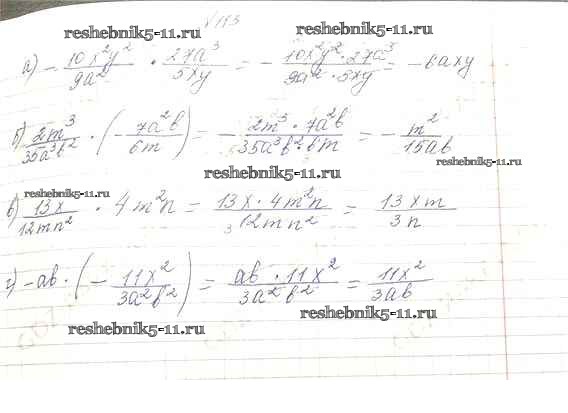 № 113
reshebnik5-11.ru reshebnik5-11.ru
а) - 10x²y²/9a² · 27a³/5xy = - 10x²y² · 27a³/9a² · 5xy = -6axy
reshebnik5-11.ru reshebnik5-11.ru
б) 2m³/35a³b² · (- 7a²b/6m) = - 2m³ · 7a²b/35a³b² · 6m = - m²/15ab
reshebnik5-11.ru reshebnik5-11.ru
в) 13x/12mn² · 4m²n = 13x · 4m²n/12mn² = 13xm/3n
3
г) -ab · (- 11x²/3a²b²) = ab · 11x²/3a²b² = 11x²/3ab
reshebnik5-11.ru reshebnik5-11.ru